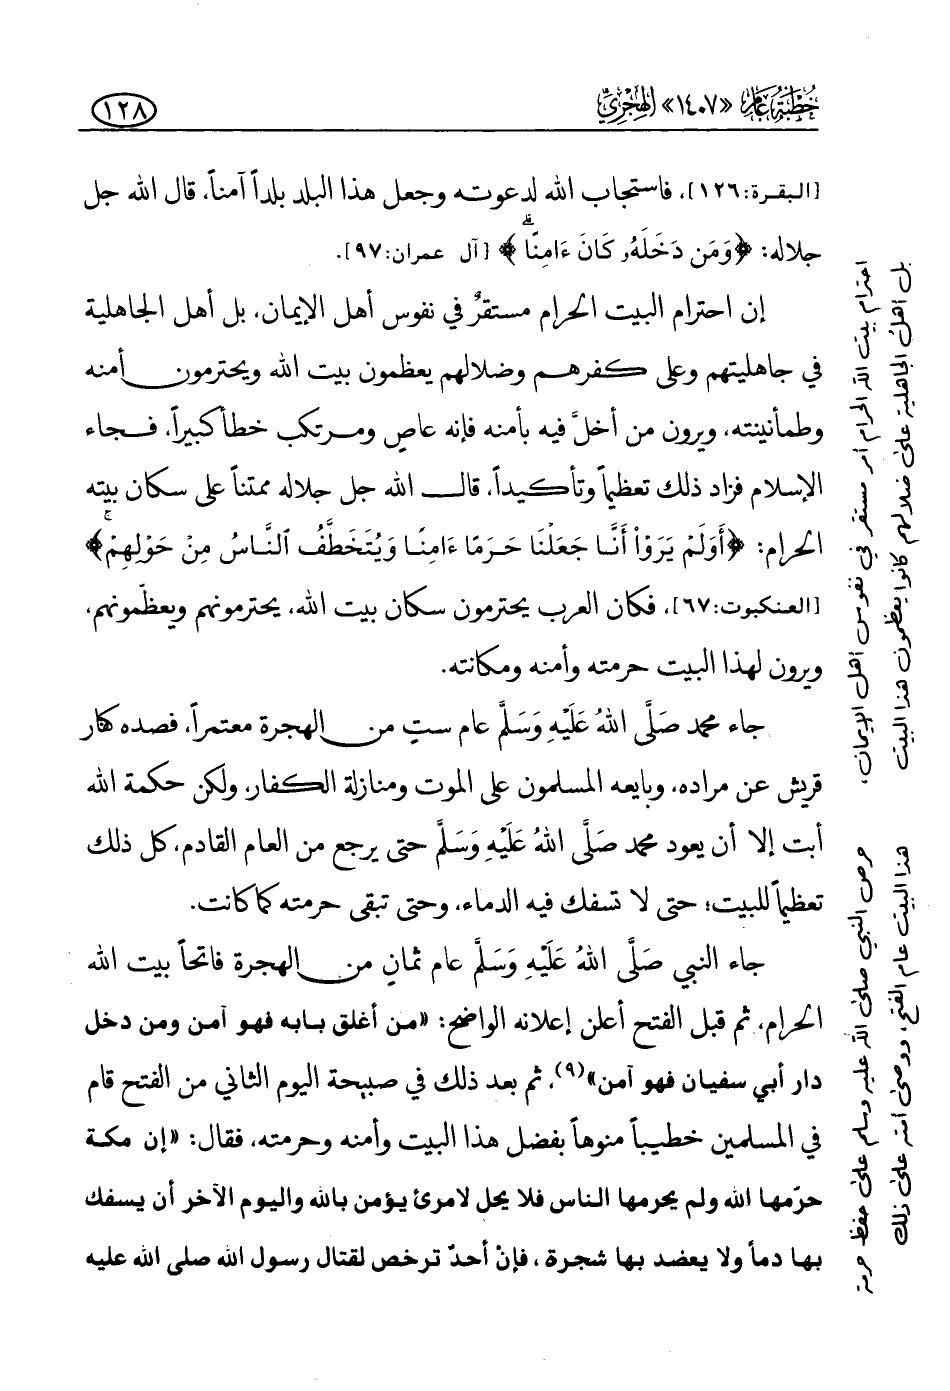 خُطْبَةُ عَامِ «١٤٠٧» الْهِجْرِيِّ
١٢٨
[البقرة:١٢٦]، فاستجاب الله لدعوته وجعل هذا البلد بلداً آمناً، قال الله جل
جلاله: ﴿وَمَن دَخَلَهُۥ كَانَ ءَامِنًاۗ﴾ [آل عمران:٩٧].
إن احترام البيت الحرام مستقرٌ في نفوس أهل الإيمان، بل أهل الجاهلية
في جاهليتهم وعلى كفرهم وضلالهم يعظمون بيت الله ويحترمون أمنه
وطمأنينته، ويرون من أخلَّ فيه بأمنه فإنه عاصٍ ومرتكب خطأ كبيراً، فجاء
الإسلام فزاد ذلك تعظيماً وتأكيداً، قال الله جل جلاله ممتناً على سكان بيته
الحرام: ﴿أَوَلَمْ يَرَوْاْ أَنَّا جَعَلْنَا حَرَمًا ءَامِنًا وَيُتَخَطَّفُ ٱلنَّاسُ مِنْ حَوْلِهِمْۚ﴾
[العنكبوت:٦٧]، فكان العرب يحترمون سكان بيت الله، يحترمونهم ويعظّمونهم،
ويرون لهذا البيت حرمته وأمنه ومكانته.
جاء محمد صَلَّى اللهُ عَلَيْهِ وَسَلَّم عام ستٍ من الهجرة معتمراً، فصده كفار
قريش عن مراده، وبايعه المسلمون على الموت ومنازلة الكفار، ولكن حكمة الله
أبت إلا أن يعود محمد صَلَّى اللهُ عَلَيْهِ وَسَلَّم حتى يرجع من العام القادم، كل ذلك
تعظيماً للبيت؛ حتى لا تسفك فيه الدماء، وحتى تبقى حرمته كما كانت.
جاء النبي صَلَّى اللهُ عَلَيْهِ وَسَلَّم عام ثمانٍ من الهجرة فاتحاً بيت الله
الحرام، ثم قبل الفتح أعلن إعلانه الواضح: «من أغلق بابه فهو آمن ومن دخل
دار أبي سفيان فهو آمن»(٩)، ثم بعد ذلك في صبيحة اليوم الثاني من الفتح قام
في المسلمين خطيباً منوهاً بفضل هذا البيت وأمنه وحرمته، فقال: «إن مكة
حرّمها الله ولم يحرمها الناس فلا يحل لامرئ يؤمن بالله واليوم الآخر أن يسفك
بها دماً ولا يعضد بها شجرة، فإنْ أحدٌ ترخص لقتال رسول الله صلى الله عليه
احترام بيت الله الحرام أمر مستقر في نفوس أهل الإيمان،
بل أهلُ الجاهلية على ضلالهم كانوا يعظمون هذا البيت
حرص النبي صلى الله عليه وسلم على حفظ حرمة
هذا البيت عام الفتح، ووصى أمته على ذلك